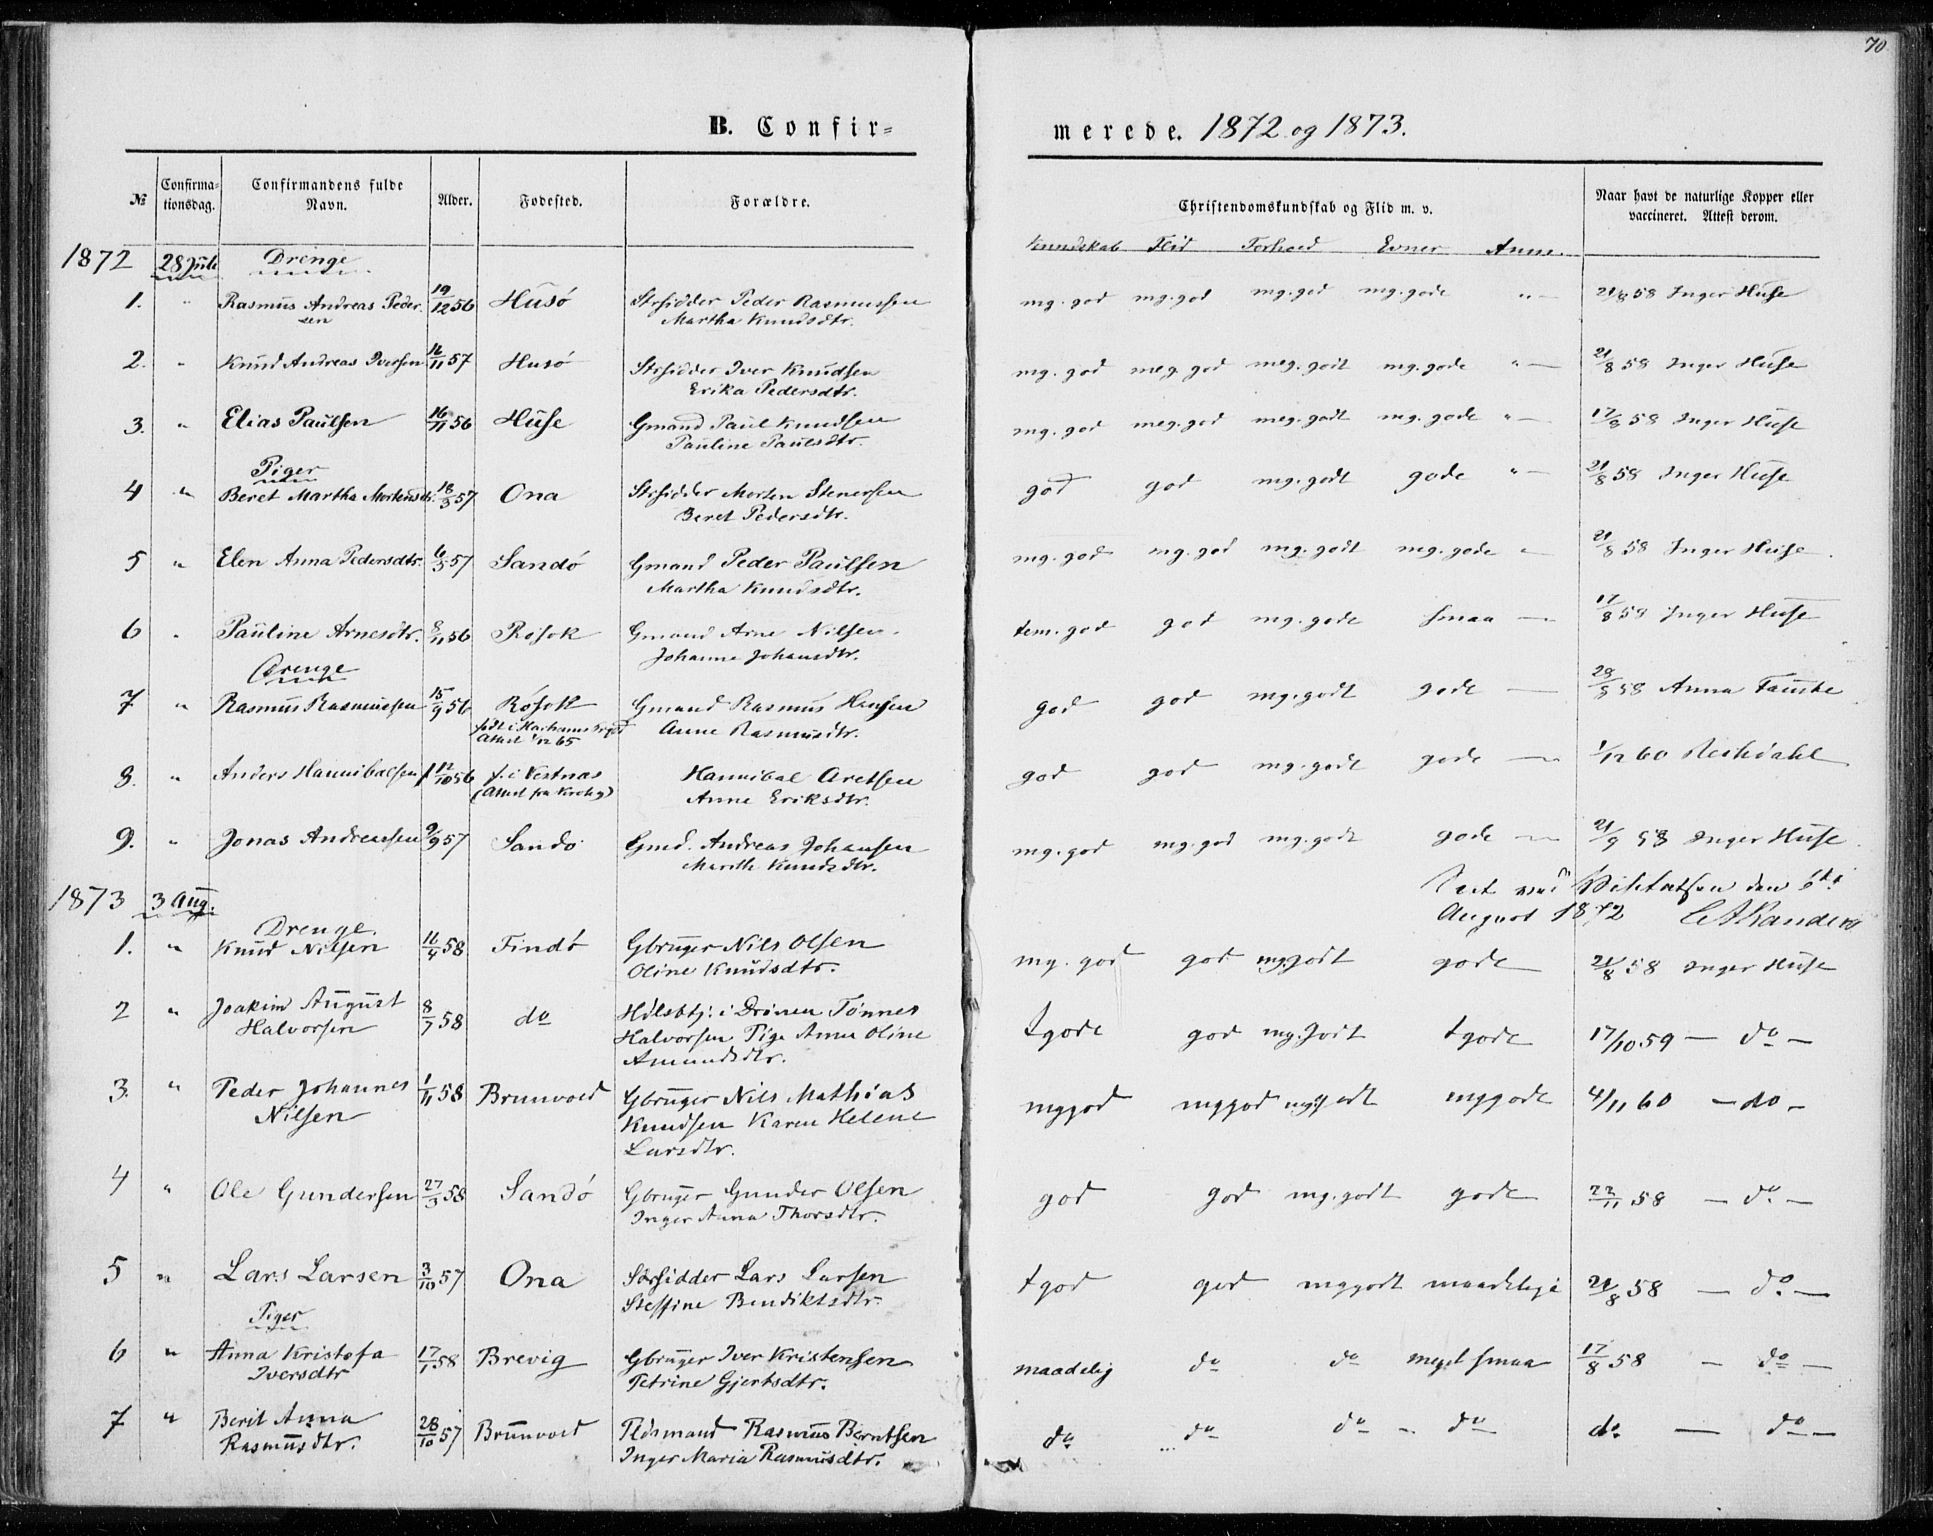 70
B. Confir-
merede. 1872 og 1873.
№ Confirma-tionsdag. Confirmandens fulde Navn. Alder. Fødested. Forældre. Christendomskundskab og Flid m. v. Naar havt de naturlige Kopper eller vaccineret. Attest derom.
Kundskab Flid Forhold Evner Anm.
1872 28 Juli Drenge
1. " Rasmus Andreas Peder- 19/12 56 Husø Strsidder Peder Rasmussen mg. god mg. god mg. god mg. gode " — 21/8 58 Inger Huse
sen Martha Knudsdtr.
2. " Knud Andreas Iversen 16/11 57 Husø Strsidder Iver Knudsen mg. god meg. god meg. godt mg. gode " — 21/8 58 Inger Huse
Erika Pedersdtr.
3. " Elias Paulsen 16/11 56 Huse Gmand Paul Knudsen mg. god meg. god meg. godt mg. gode " — 17/8 58 Inger Huse
Pauline Paulsdtr.
Piger
4 " Beret Martha Mortensdtr. 18/3 57 Ona Strsidder Morten Stenersen god god mg. godt gode " — 21/8 58 Inger Huse
Beret Pedersdtr.
5 " Elen Anna Pedersdtr. 6/5 57 Sandø Gmand Peder Paulsen mg. god mg. god mg. godt mg. gode " — 21/8 58 Inger Huse
Martha Knudsdtr.
6 " Pauline Arnesdtr. 8/11 56 Røsok Gmand Arne Nilsen. tem. god god mg. gode smaa — 17/8 58 Inger Huse
Johanne Johansdtr.
Drenge
7 " Rasmus Rasmussen 15/9 56 Røsok Gmand Rasmus Hansen god god mg. godt gode — 58 Anna
født i Harhams Prgd Anne Rasmusdtr.
Attest 1/12 65
8. " Anders Hannibalsen 12/10 56 f. i Vestnæs Hannibal Aretsen god god mg. godt gode — 1/12 60
(Attest fra Krohg) Anne Eriksdtr.
9. " Jonas Andreassen 9/9 57 Sandø Gmd. Andreas Johansen mg. god mg. god mg. godt gode — 21/9 58 Inger Huse
Marith Knudsdtr.
Seet ved Visitatsen den 6te
August 1872
1873 3 Aug.
Drenge.
1. " Knud Nilsen 16/4 58 Findø Gbruger Nils Olsen mg. god god mg. godt gode 21/8 58 Inger Huse
Oline Knudsdtr.
2 " Joakim August 8/7 58 do i Drønen Tønnes tgode god mg. godt tgode 17/10 59 — do —
Halvorsen Halvorsen Pige Anne Oline
Amundsdtr.
3. " Peder Johannes 1/11 58 Brunvold Gbruger Nils Mathias mggod mggod mggodt mggode 4/11 60 — do —
Nilsen Knudsen Karen Helene
Larsdtr.
4 " Ole Gundersen 27/3 58 Sandø Gbruger Gunder Olsen god god mg. godt gode 22/11 58 — do. —
Inger Anna Thorsdtr.
5 " Lars Larsen 3/10 57 Ona Strsidder Lars Larsen tgod god mggodt maadelige 21/8 58 — do. —
Steffine Bendiktsdtr.
Piger
6 " Anna Kristofa 17/1 58 Brevig Gbruger Iver Kristensen maadelig do do meget smaa 17/8 58 — do —
Iversdtr Petrine Gjertsdtr.
7 " Berit Anna 28/10 57 Brunvold Pldsmand Rasmus Berntsen do do do — do do — do —
Rasmusdtr. Inger Maria Rasmusdtr.